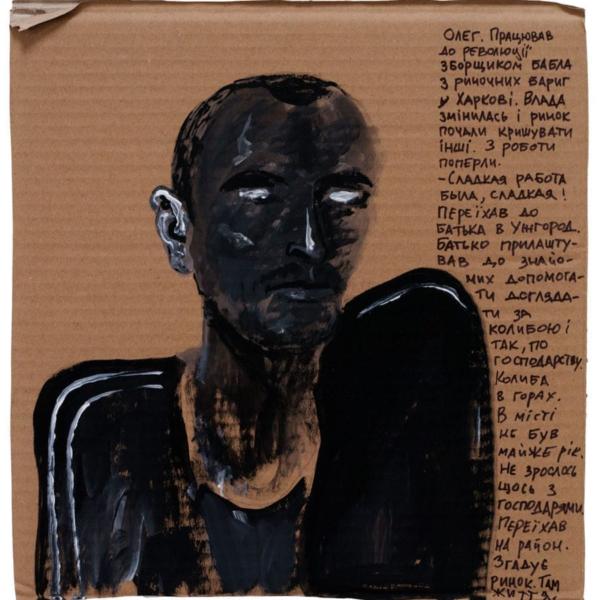 Олег. Працював
до революції
зборщиком бабла
з риночних бариг
у Харкові. Влада
змінилась і ринок
почали кришувати
інші. З роботи
поперли.
-Сладкая работа
была, сладкая!
Переїхав до
батька в Ужгород.
Батько прилашту-
вав до знайо-
мих допомога-
ти догляда-
ти за
колибою і
так, по
господарству.
Колиба
в горах.
В місті
не був
майже рік.
Не зрослось
щось з
господарями.
Переїхав
на район.
Згадує
ринок. Там
життя.